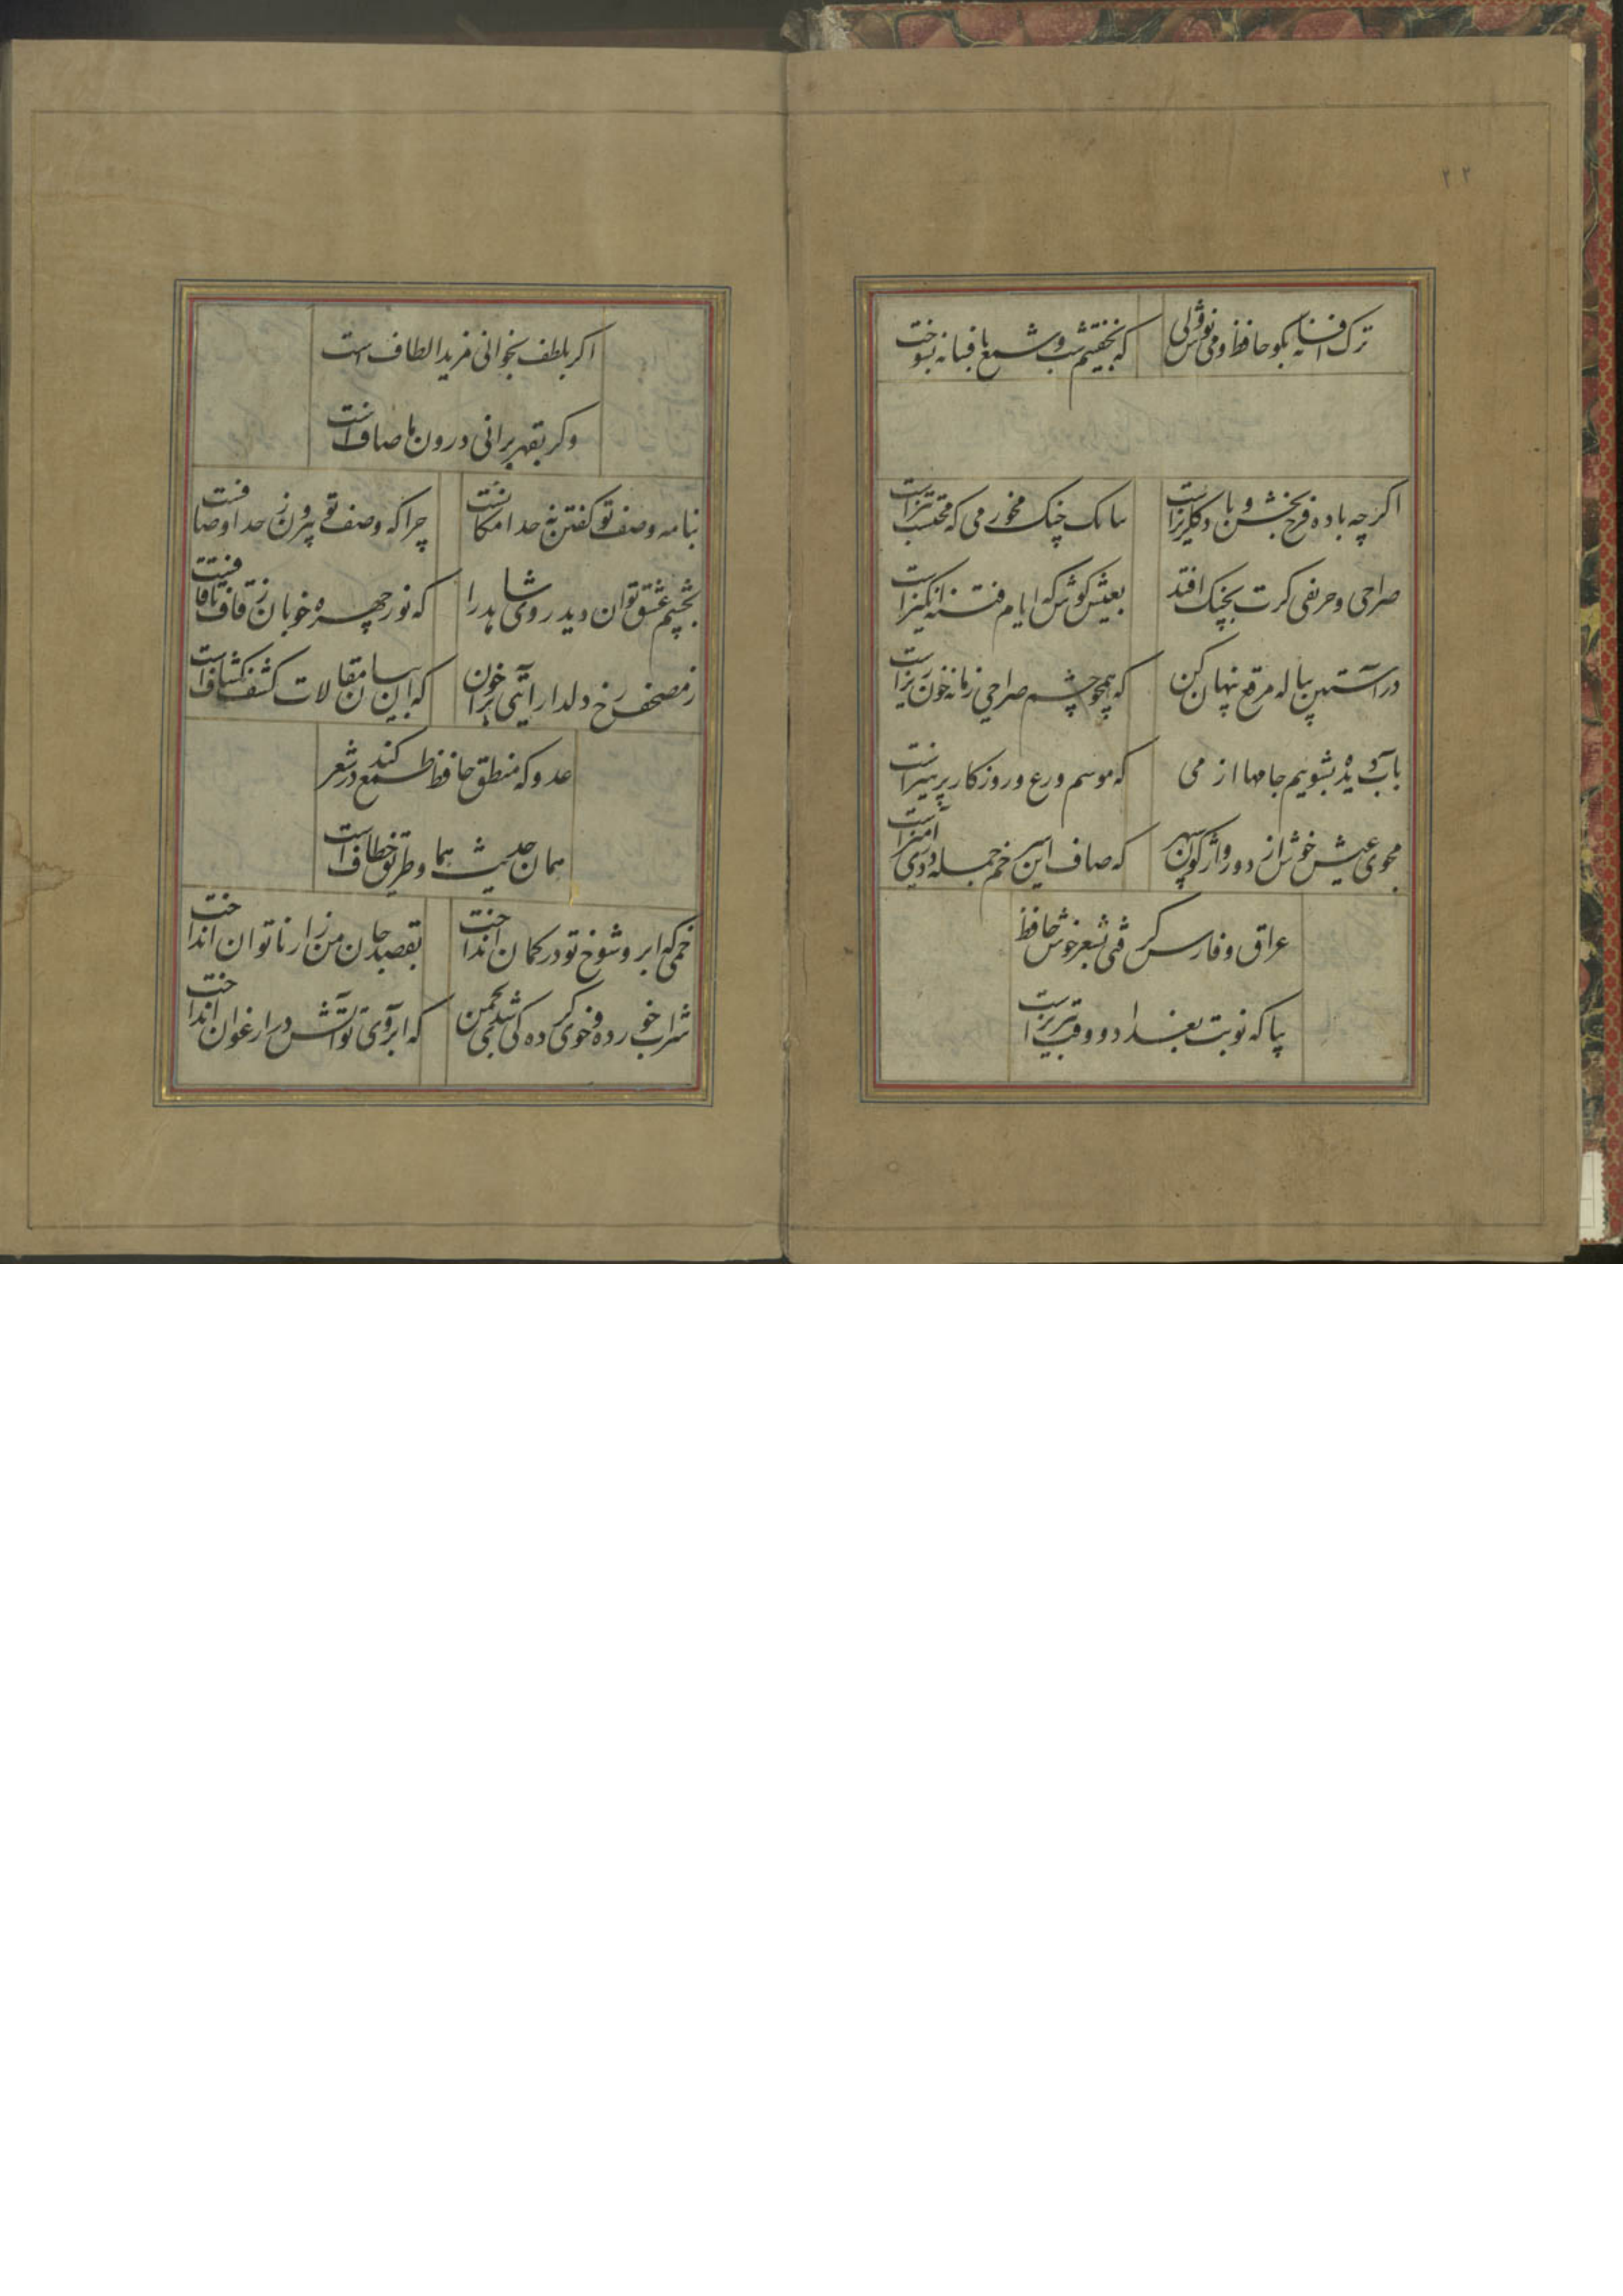 ۲۲
ترک افسانه بکو حافظ و می نوش ولی
که نخفتیم شب و شمع بافسانه بسوخت
اکر چه باده فرح بخش و باد کلریزاست
ببانک چنک مخور می که محتسب تیزاست
صراحی و حریفی کرت بچنک افتد
بعیش کوش که ایام فتنه انکیزاست
در آستین پیاله مرقع پنهان کن
که همچو چشم صراحی زمانه خون ریزاست
بآب دیده بشویم جامها از می
که موسم ورع و روزکار پرهیزاست
مجوی عیش خوش از دور واژکون سپهر
که صاف این سر خم جمله دردی آمیزاست
عراق و فارس کرفتی بشعر خوش حافظ
بیا که نوبت بغداد و وقت تبریزاست
اکر بلطف بخوانی مزید الطاف است
وکر بقهر برانی درون ما صاف است
بنامه وصف تو کفتن نه حد امکانست
چرا که وصف تو بیرون ز حد اوصافست
بچشم عشق توان دید روی شاهد را
که نور چهره خوبان ز قاف تا قافست
ز مصحف رخ دلدار آیتی برخوان
که این بیان مقالات کشف کشاف است
عدو که منطق حافظ طمع کند در شعر
همان حدیث هما و طریق خطاف است
خمی که ابروی شوخ تو در کمان انداخت
بقصد جان من زار ناتوان انداخت
شراب خورده و خوی کرده کی شدی بچمن
که ابروی تو آتش در ارغوان انداخت